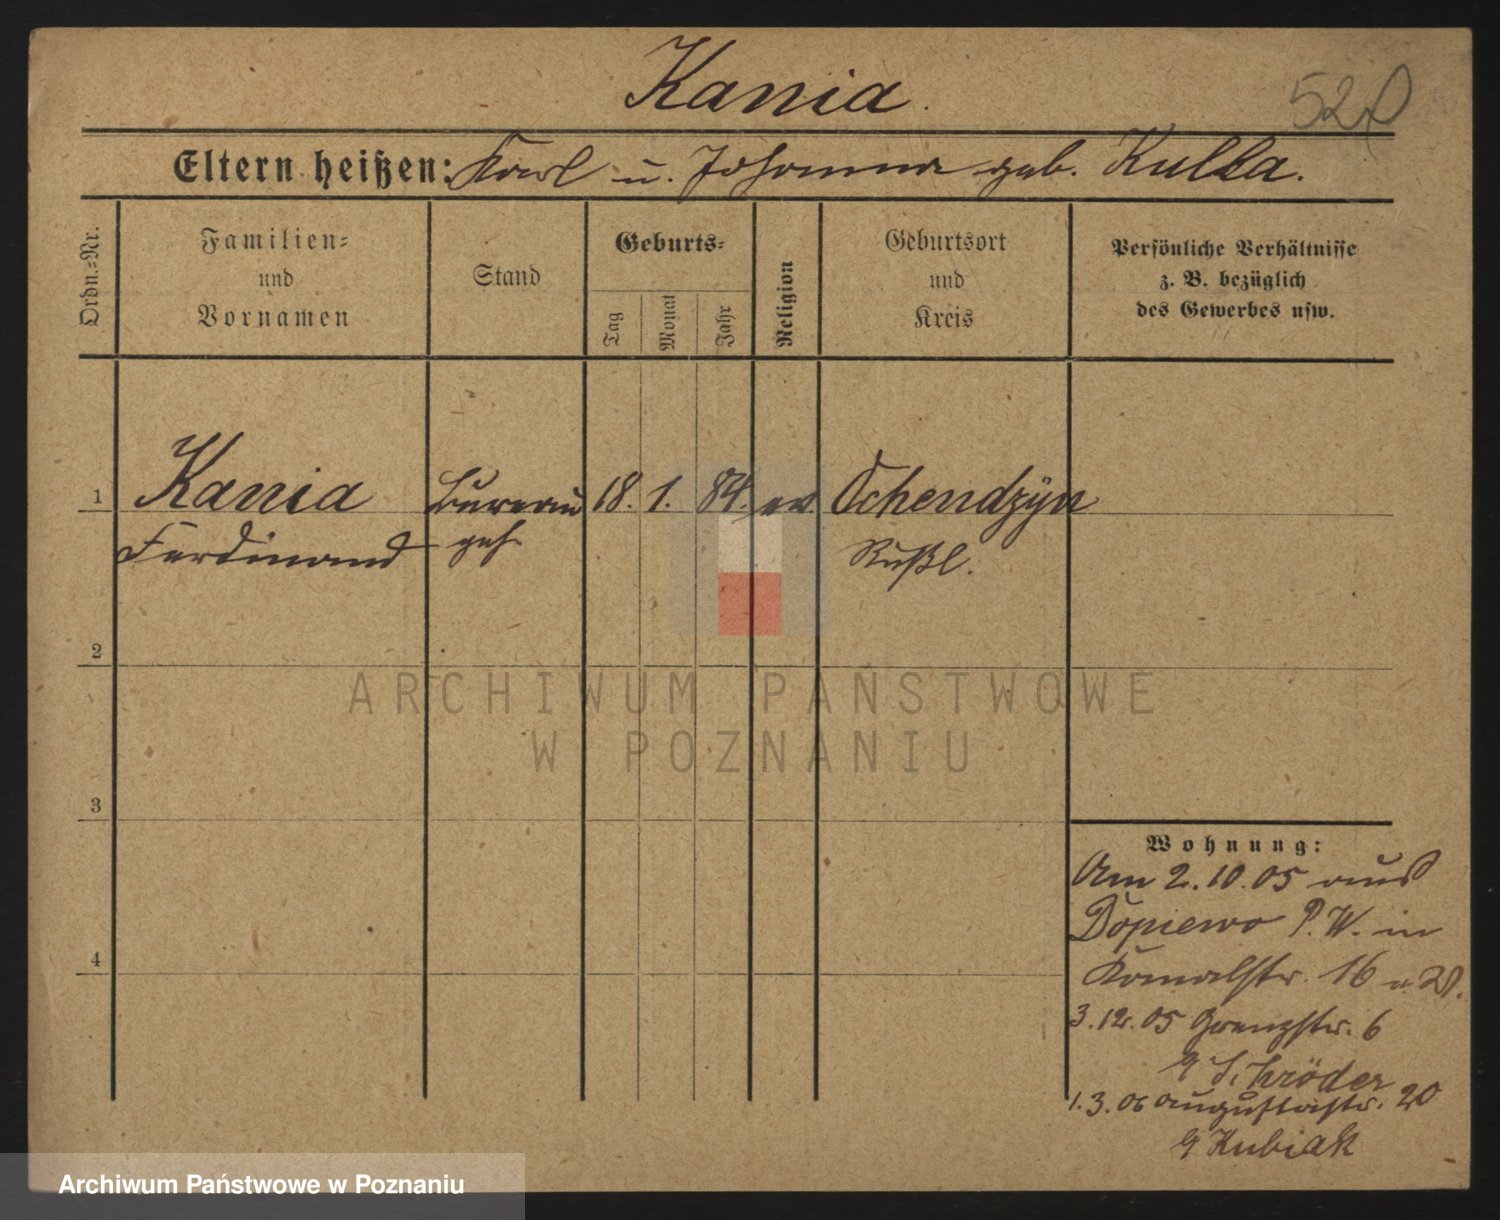 Kania.
520
Eltern heißen: Karl u. Johanna geb. Kulla.
Ordn.-Nr.
Familien-
und
Vornamen
Stand
Geburts-
Tag
Monat
Jahr
Religion
Geburtsort
und
Kreis
Persönliche Verhältnisse
z. B. bezüglich
des Gewerbes usw.
1 Kania Bureau 18. 1. 84. ev. Ochendzyn
Ferdinand geh. Rußl.
2
3
4
Wohnung:
Am 2.10.05 aus
Dopiewo P.W. in
16
3.12.05 Grenzstr. 6
Schröder
1.3.06 Augustastr. 20
Kubiak
ARCHIWUM PAŃSTWOWE
W POZNANIU
Archiwum Państwowe w Poznaniu